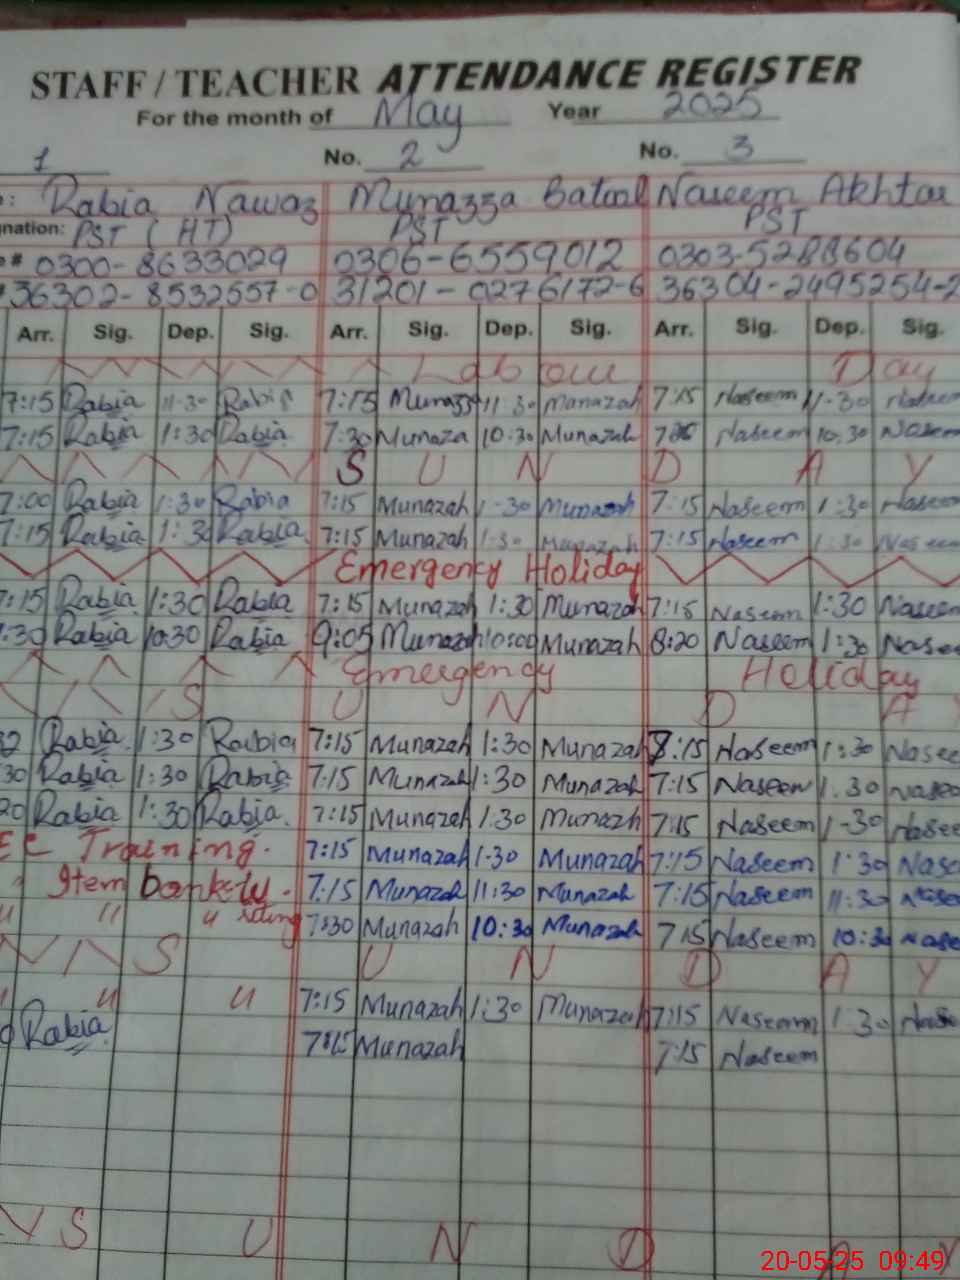 STAFF / TEACHER ATTENDANCE REGISTER
For the month of May Year 2025
1 No. 2 No. 3
: Rabia Nawaz Munazza Batool Naseem Akhtar
nation: PST (HT) PST PST
# 0300-8633029 0306-6559012 0303-5288604
36302-8532557-0 31201-0276172-6 36304-2495254-2
Arr. Sig. Dep. Sig. Arr. Sig. Dep. Sig. Arr. Sig. Dep. Sig.
Labour Day
7:15 Rabia 11-30 Rabia 7:15 Munazza 11:30 Munazah 7:15 Naseem 11-30 Naseem
7:15 Rabia 1:30 Rabia 7:30 Munaza 10:30 Munazah Naseem 10:30 Naseem
S U N D A Y
7:00 Rabia 1:30 Rabia 7:15 Munazah 1-30 Munazah 7:15 Naseem 1:30 Naseem
7:15 Rabia 1:30 Rabia 7:15 Munazah 1-30 Munazah 7:15 Naseem 1:30 Naseem
Emergency Holiday
7:15 Rabia 1:30 Rabia 7:15 Munazah 1:30 Munazah 7:15 Naseem 1:30 Naseem
:30 Rabia 10:30 Rabia 9:05 Munazah 10:00 Munazah 8:20 Naseem 1:30 Nasee
Emergency Holiday
S U N D A Y
32 Rabia 1:30 Rabia 7:15 Munazah 1:30 Munazah 8:15 Naseem 1:30 Nasee
30 Rabia 1:30 Rabia 7:15 Munazah 1:30 Munazah 7:15 Naseem 1.30 Nasee
20 Rabia 1:30 Rabia. 7:15 Munazah 1:30 Munazh 7:15 Naseem 1-30 Nasee
Training. 7:15 Munazah 1-30 Munazah 7:15 Naseem 1:30 Nase
Item 7:15 Munazah 11:30 Munazah 7:15 Naseem 11:30 Nase
" " " 7:30 Munazah 10:30 Munazah 7:15 Naseem 10:30 Nase
S U N D A Y
" " " 7:15 Munazah 1:30 Munazah 7:15 Naseem 1:30 Nase
Rabia 7:15 Munazah 7:15 Naseem
S U N D A Y
20-05-25 09:49